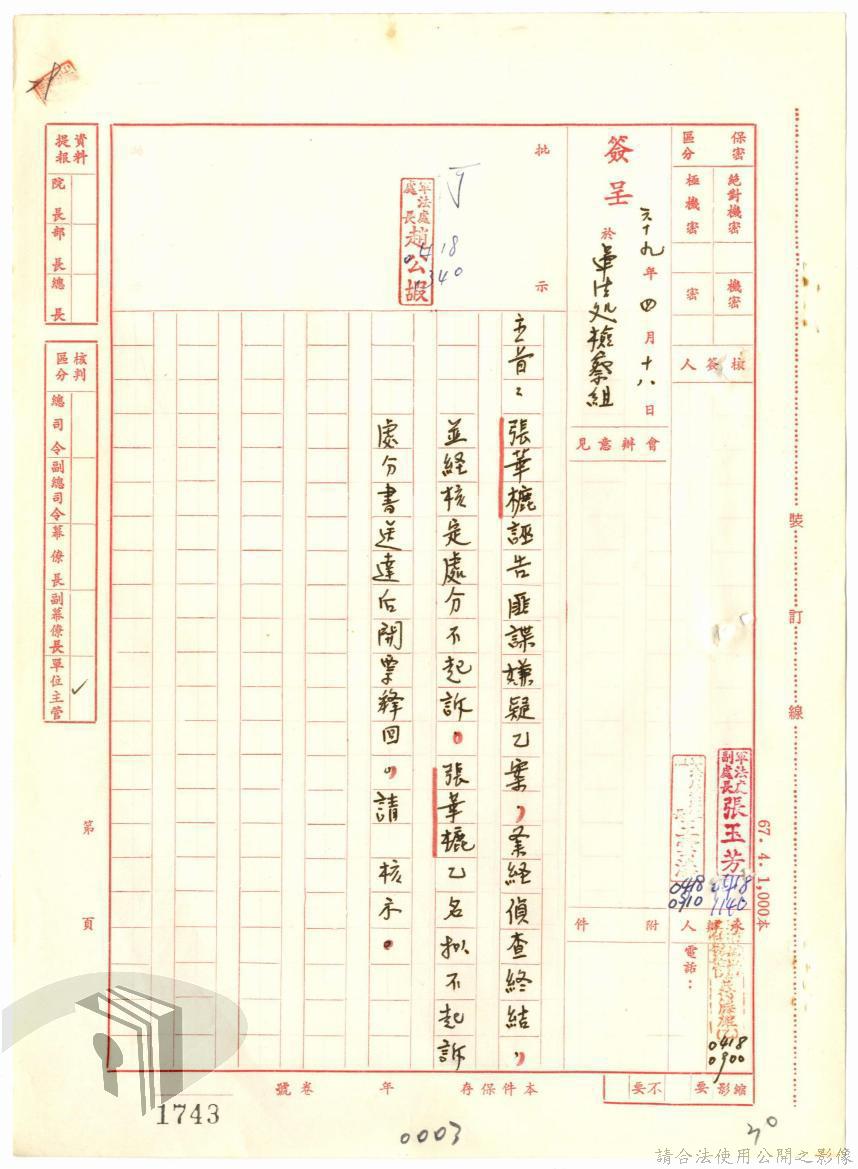 保密區分
絕對機密
極機密
機密
密
核簽人
簽呈
六十九年四月十八日
於軍法處檢察組
會辦意見
批示
可
軍法處處長趙公嘏
0418
1340
主旨：張華樚誣告匪諜嫌疑乙案，業経偵查終結，
並経核定處分不起訴。張華樚乙名拟不起訴
處分書送達后開票釋回，請　核示。
軍法處副處長張玉芳
0418
1140
0418
0910
承辦人
電話：
0418
0900
附件
縮影
要
不要
本件保存　年　卷　號
資料提報
院長
部長
總長
核判區分
總司令
副總司令
幕僚長
副幕僚長
單位主管
✓
第　頁
裝訂線
67.4.1,000本
1743
0003
請合法使用公開之影像